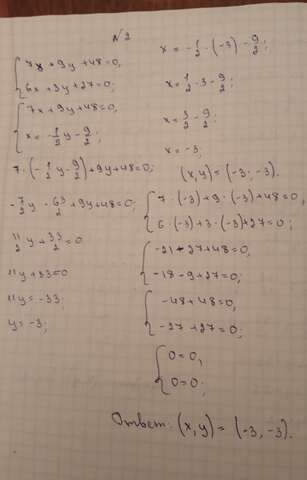 №2
{ 7x + 9y + 48 = 0,
{ 6x + 3y + 27 = 0;
{ 7x + 9y + 48 = 0,
{ x = -1/2 y - 9/2;
7 · (-1/2 y - 9/2) + 9y + 48 = 0;
-7/2 y - 63/2 + 9y + 48 = 0;
11/2 y + 33/2 = 0
11y + 33 = 0
11y = -33;
y = -3;
x = -1/2 · (-3) - 9/2;
x = 1/2 · 3 - 9/2;
x = 3/2 - 9/2;
x = -3.
(x, y) = (-3, -3).
{ 7 · (-3) + 9 · (-3) + 48 = 0,
{ 6 · (-3) + 3 · (-3) + 27 = 0;
{ -21 - 27 + 48 = 0,
{ -18 - 9 + 27 = 0;
{ -48 + 48 = 0,
{ -27 + 27 = 0;
{ 0 = 0,
{ 0 = 0;
Ответ: (x, y) = (-3, -3).